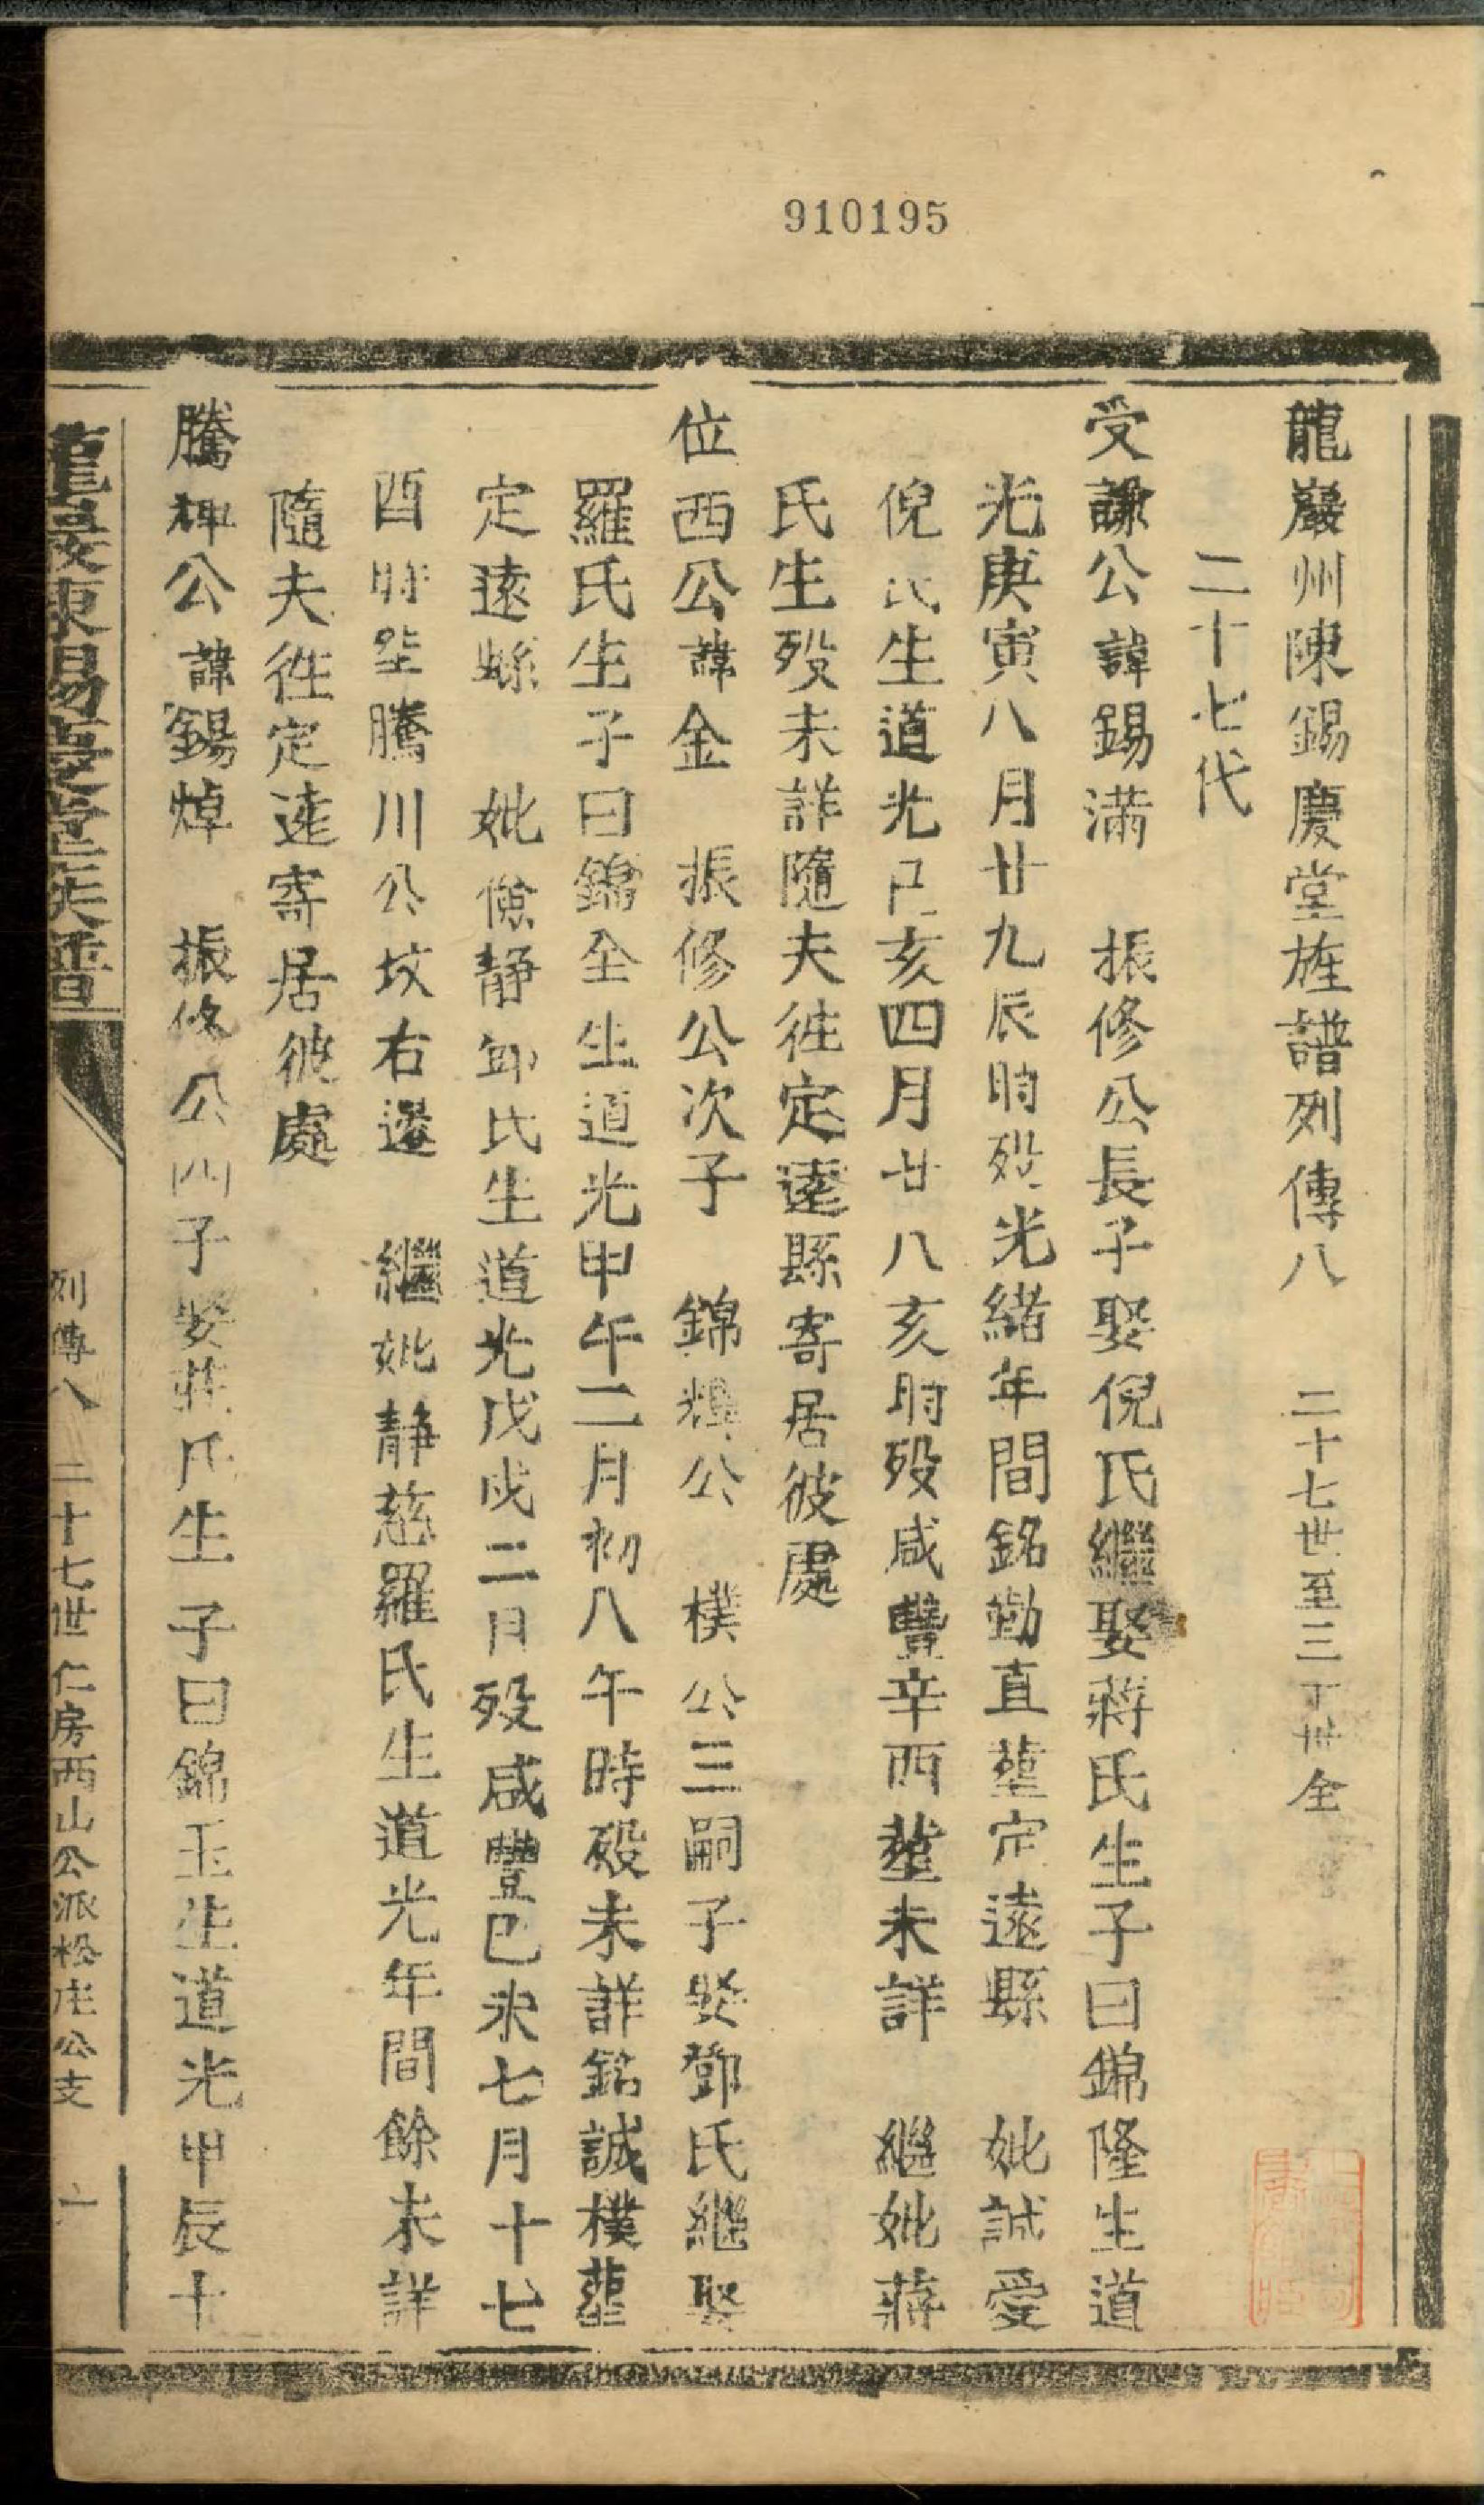 910195
龍巖州陳錫慶堂族譜列傳八 二十七世至三十世全
二十七代
受謙公諱錫滿 振修公長子娶倪氏繼娶蔣氏生子曰錦隆生道
光庚寅八月廿九辰時殁光緒年間銘勤直塟定遠縣 妣誠愛
倪氏生道光己亥四月廿八亥時殁咸豐辛酉塟未詳 繼妣蔣
氏生殁未詳隨夫徃定遠縣寄居彼處
位西公諱金 振修公次子 錦輝公 樸公三嗣子娶鄧氏繼娶
羅氏生子曰錦全生道光甲午二月初八午時殁未詳銘誠樸塟
定遠縣 妣儉静鄧氏生道光戊戌二月殁咸豐己未七月十七
酉時塟騰川公坟右邊 繼妣静慈羅氏生道光年間餘未詳
隨夫徃定遠寄居彼處
騰輝公諱錫焯 振修公四子娶莊氏生子曰錦玉生道光甲辰十
龍巖陳錫慶堂族譜 列傳八 二十七世仁房西山公派松庄公支 一